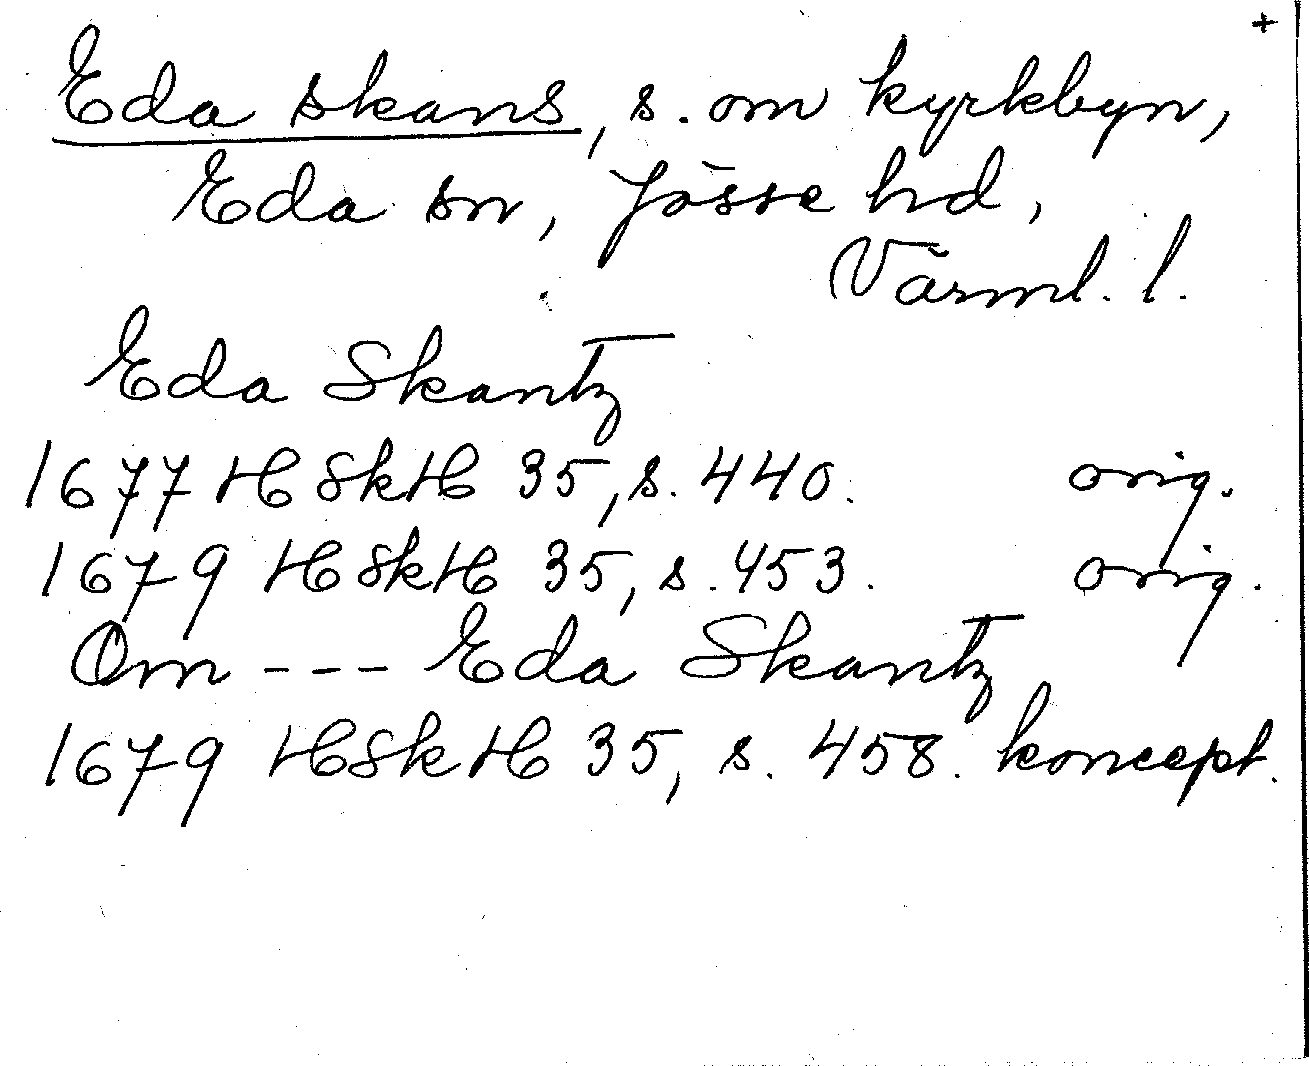 +
Eda skans, s. om kyrkbyn,
Eda sn, Jösse hd,
Värml. l.
Eda Skantz
1677 HSkH 35, s. 440. orig.
1679 HSkH 35, s. 453. orig.
Om --- Eda Skantz
1679 HSkH 35, s. 458. koncept.